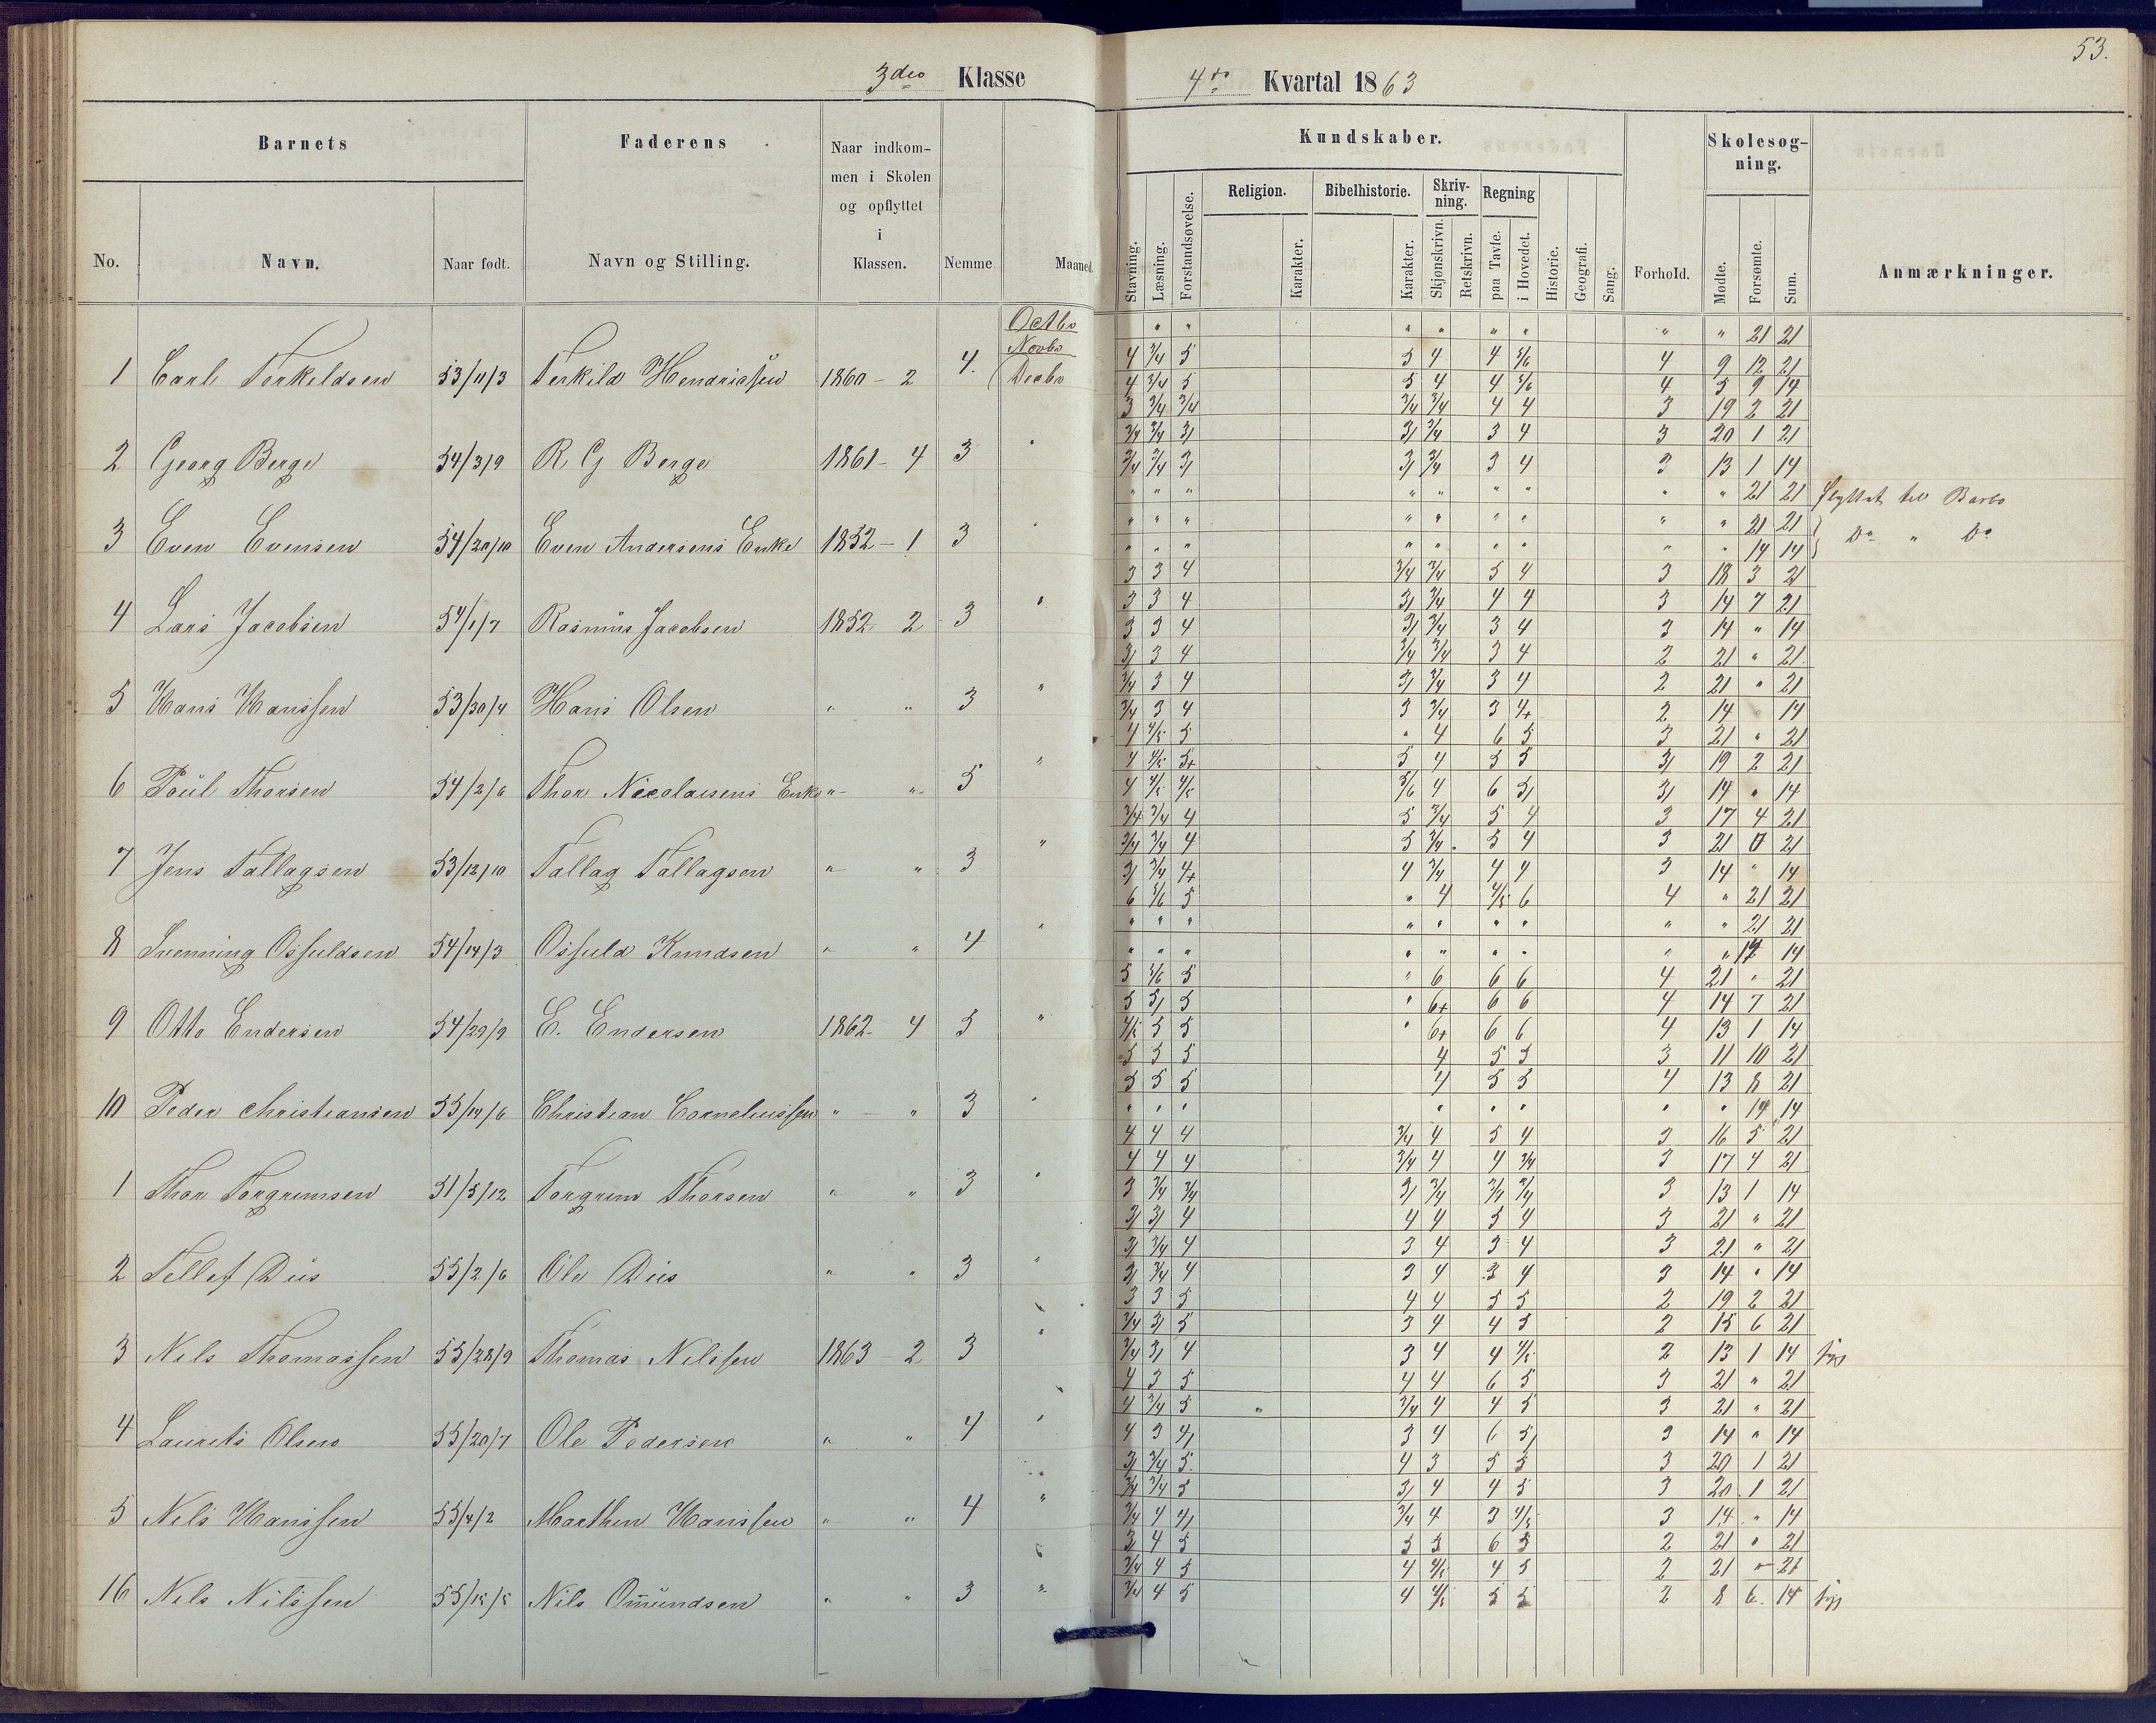 53.
3die Klasse
4de Kvartal 1863
Barnets
Faderens
Naar indkommen i Skolen og opflyttet i Klassen.
Nemme
Maaned.
No.
Navn.
Naar født.
Navn og Stilling.
Kundskaber.
Stavning.
Læsning.
Forstandsøvelse.
Religion.
Karakter.
Bibelhistorie.
Karakter.
Skrivning.
Skjønskrivn.
Retskrivn.
Regning
paa Tavle.
i Hovedet.
Historie.
Geografi.
Sang.
Forhold.
Skolesøgning.
Mødte.
Forsømte.
Sum.
Anmærkninger.
1 Carl Terkeldsen 53/11/3 Terkild Hendriksen 1860 - 2 4. Octbr Novbr Decbr
2 Georg Berge 54/3/9 R G Berge 1861 - 4 3 "
3 Even Evensen 54/20/10 Even Andersens Enke 1852 - 1 3 "
4 Lars Jacobsen 54/1/7 Rasmus Jacobsen 1852 2 3 "
5 Hans Hanssen 53/30/4 Hans Olsen " " 3 "
6 Poul Thorsen 54/2/6 Thor Nicolaisens Enke " " 5 "
7 Jens Tallagsen 53/12/10 Tallag Tallagsen " " 3 "
8 Svenning Osfuldsen 54/14/3 Osfuld Knudsen " " 4 "
9 Otto Endersen 54/29/9 E. Endersen 1862 - 4 5 "
10 Peder Christiansen 55/14/6 Christian Corneliussen " " 3 "
1 Thor Torgrimsen 51/5/12 Torgrim Thorsen " " 3 "
2 Tellef Dus 55/2/6 Ole Dus " " 3 "
3 Nils Thomassen 55/28/9 Thomas Nilssen 1863 - 2 3 "
4 Laurits Olsen 55/20/7 Ole Pedersen " " 4 "
5 Nils Hanssen 55/4/2 Marthin Hanssen " " 4 "
16 Nils Nilssen 55/15/5 Nils Omundsen " " 3 "
" " " " " " " " 21 21
4 3/4 5 5 4 4 5/6 4 9 12 21
4 3/4 5 5 4 4 5/6 4 5 9 14
3 3/4 3/4 3/4 3/4 4 4 3 19 2 21
3/4 3/4 3/ 3/ 3/4 3 4 3 20 1 21
3/4 3/4 3/ 3/ 3/4 3 4 3 13 1 14
" " " " " " " " " 21 21 flyttet til Barbo
" " " " " " " " " 21 21
" " " " " " " " " 14 14 Do " Do
3 3 4 3/4 3/4 5 4 3 18 3 21
3 3 4 3/ 3/4 4 4 3 14 7 21
3 3 4 3/ 3/4 3 4 3 14 " 14
3/ 3 4 3/4 3/4 3 4 2 21 " 21
3/4 3 4 3/ 3/4 3 4 2 21 " 21
3/4 3 4 3 3/4 3 4+ 2 14 14
4 4/5 5 " 4 6 5 3 21 " 21
4 4/5 5+ 5 4 5 5 3/ 19 2 21
4 4/5 4/5 5/6 4 6 5/ 3/ 14 " 14
3/4 3/4 4 5 3/4 5 4 3 17 4 21
3/4 3/4 4 5 3/4 5 4 3 21 0 21
3/ 3/4 4+ 4 3/4 4 4 3 14 " 14
6 5/6 5 " 4 4/5 6 4 " 21 21
" " " " " " " " " 21 21
" " " " " " " " " 14 14
5 5/6 5 " 6 6 6 4 21 " 21
5 5/ 5 " 6+ 6 6 4 14 7 21
4/5 5 5 " 6+ 6 6 4 13 1 14
5 5 5 4 5 5 3 11 10 21
5 5 5 4 5 5 4 13 8 21
" " " " " " " " 14 14
4 4 4 3/4 4 5 4 3 16 5 21
4 4 4 3/4 4 4 3/4 3 17 4 21
3 3/4 3/4 3/ 3/4 3/4 3/4 3 13 1 14
3/ 3/ 4 4 4 5 4 3 21 " 21
3/ 3/4 4 3 4 3 4 3 21 " 21
3/ 3/4 4 3 4 3 4 3 14 " 14
3 3 5 4 4 5 5 2 19 2 21
3/4 3/ 5 3 4 4 5 2 15 6 21
3/4 3/ 4 3 4 4 4/5 2 13 1 14
4 3 5 4 4 6 5 3 21 " 21
4 3/4 5 " 3/4 4 4 5 3 21 " 21
4 3 4/ 3 4 6 5/ 3 14 " 14
3/ 3/4 5 4 3 5 5 3 20 1 21
3/4 3/4 5 3/ 4 4 5 3 20 1 21
3/4 4 4/ 3/4 4 3 4/5 3 14 " 14
3 4 5 5 5 6 5 2 21 " 21
3/4 4 5 4 4/5 4 5 2 21 - 21
3/4 4 5 4 4/5 5 5 2 8 6 14